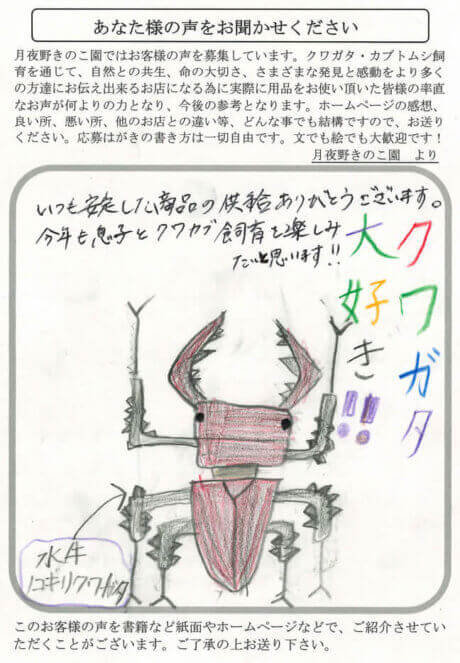 あなた様の声をお聞かせください
月夜野きのこ園ではお客様の声を募集しています。クワガタ・カブトムシ飼
育を通じて、自然との共生、命の大切さ、さまざまな発見と感動をより多く
の方達にお伝え出来るお店になる為に実際に用品をお使い頂いた皆様の率直
なお声が何よりの力となり、今後の参考となります。ホームページの感想、
良い所、悪い所、他のお店との違い等、どんな事でも結構ですので、お送り
ください。応募はがきの書き方は一切自由です。文でも絵でも大歓迎です！
月夜野きのこ園　より
いつも安定した商品の供給ありがとうございます。
今年も息子とクワカブ飼育を楽しみ
たいと思います!!
クワガタ
大好き!!
水牛
ノコギリクワガタ
このお客様の声を書籍など紙面やホームページなどで、ご紹介させてい
ただくことがございます。ご了承の上お送り下さい。